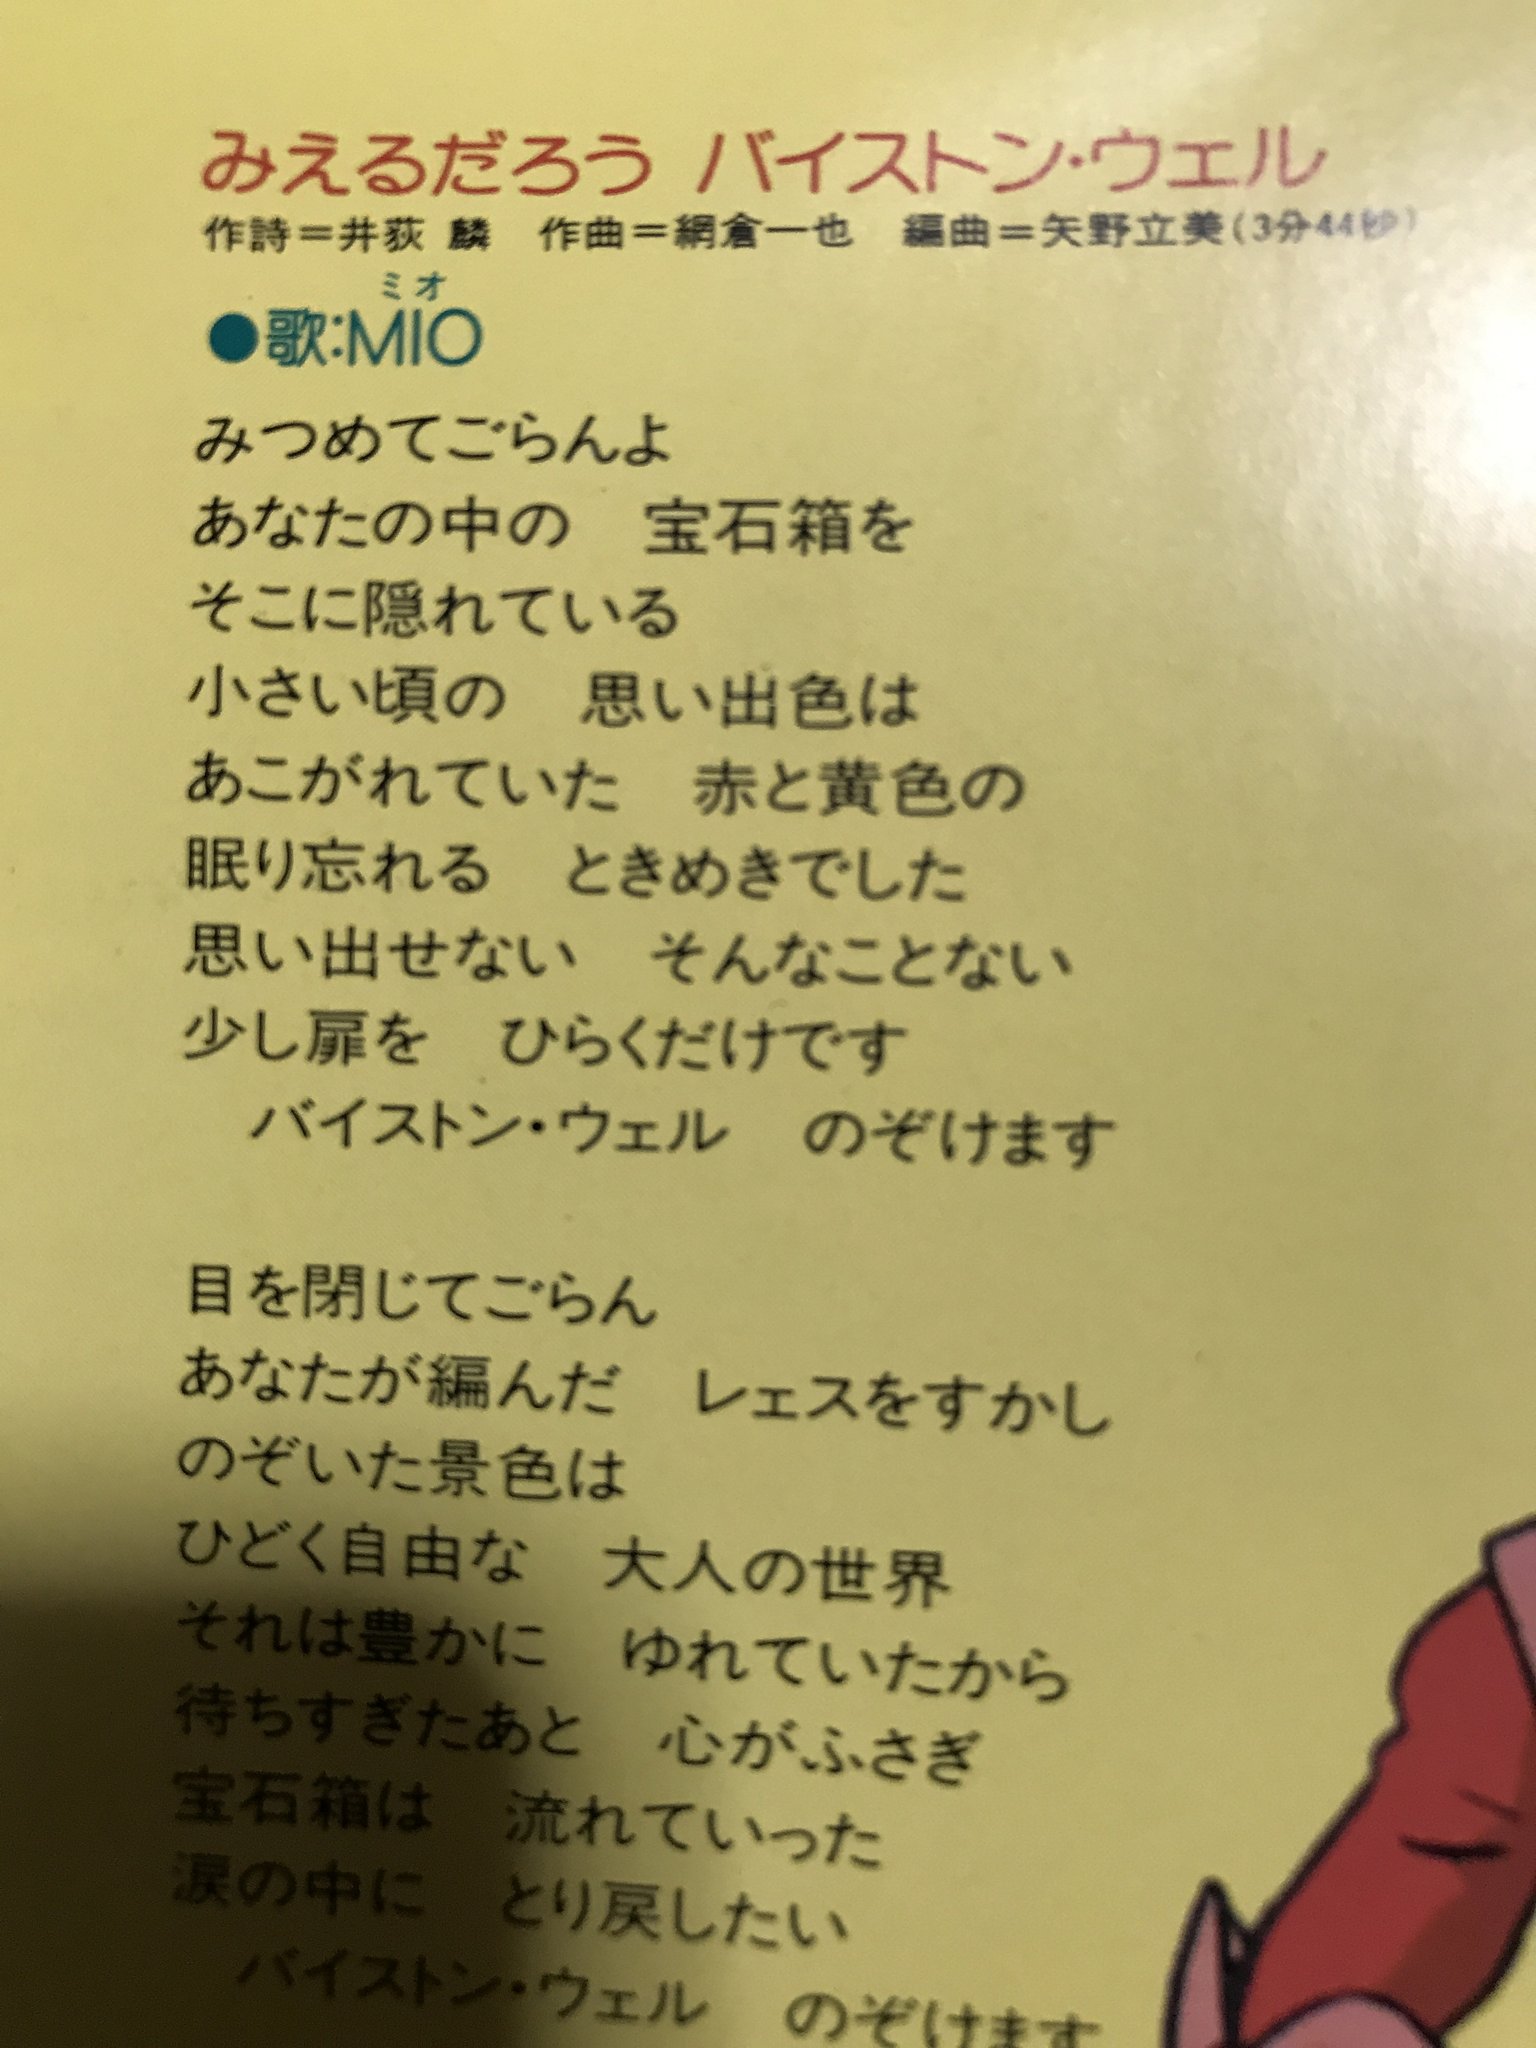 みえるだろう バイストン・ウェル
作詩＝井荻 麟　作曲＝網倉一也　編曲＝矢野立美(3分44秒)
ミオ
●歌:MIO
みつめてごらんよ
あなたの中の　宝石箱を
そこに隠れている
小さい頃の　思い出色は
あこがれていた　赤と黄色の
眠り忘れる　ときめきでした
思い出せない　そんなことない
少し扉を　ひらくだけです
バイストン・ウェル　のぞけます
目を閉じてごらん
あなたが編んだ　レェスをすかし
のぞいた景色は
ひどく自由な　大人の世界
それは豊かに　ゆれていたから
待ちすぎたあと　心がふさぎ
宝石箱は　流れていった
涙の中に　とり戻したい
バイストン・ウェル　のぞけます